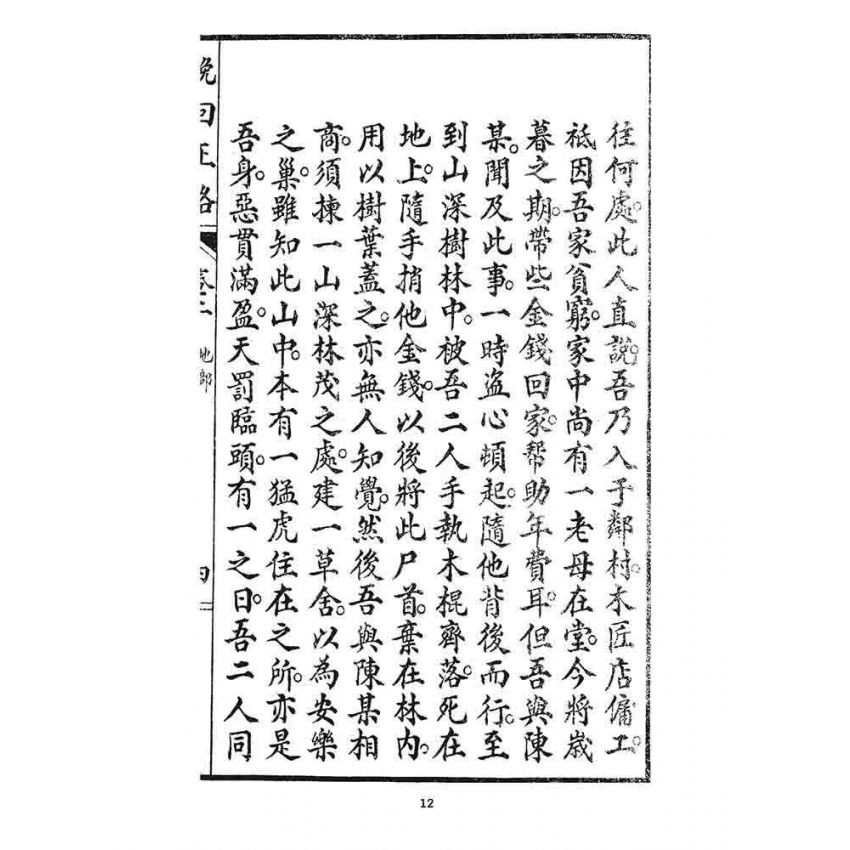 往何處。此人直說。吾乃入予鄰村。木匠店傭工。
祗因吾家貧窮。家中尚有一老母在堂。今將歲
暮之期。帶些金錢回家。帮助年費耳。但吾與陳
某。聞及此事。一時盗心頓起。隨他背後而行。至
到山深樹林中。被吾二人手執木棍齊落。死在
地上。隨手捎他金錢。以後將此尸首。棄在林內。
用以樹葉蓋之。亦無人知覺。然後吾與陳某相
商。須揀一山深林茂之處。建一草舍。以為安樂
之巢。雖知此山中。本有一猛虎住在之所。亦是
吾身。惡貫滿盈。天罰臨頭。有一之日。吾二人同
地部
12